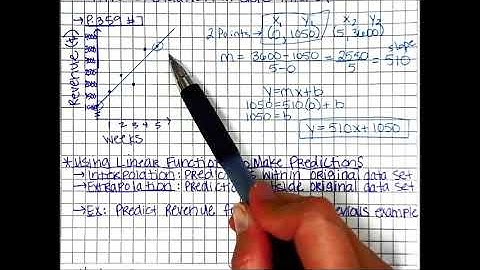 → P.359 #7
Revenue ($)
1 2 3 4 5
weeks
x₁ y₁ x₂ y₂
2 Points → (0, 1050) (5, 3600)
m = 3600-1050 = 2550 = 510
5-0 5
slope
y=mx+b
1050=510(0)+b
1050=b
y=510x+1050
*Using Linear Function to Make Predictions
→ Interpolation: Predic s within original data set
→ Extrapolation: Predictio side original data set
→ Ex: Predict Revenue f vious example